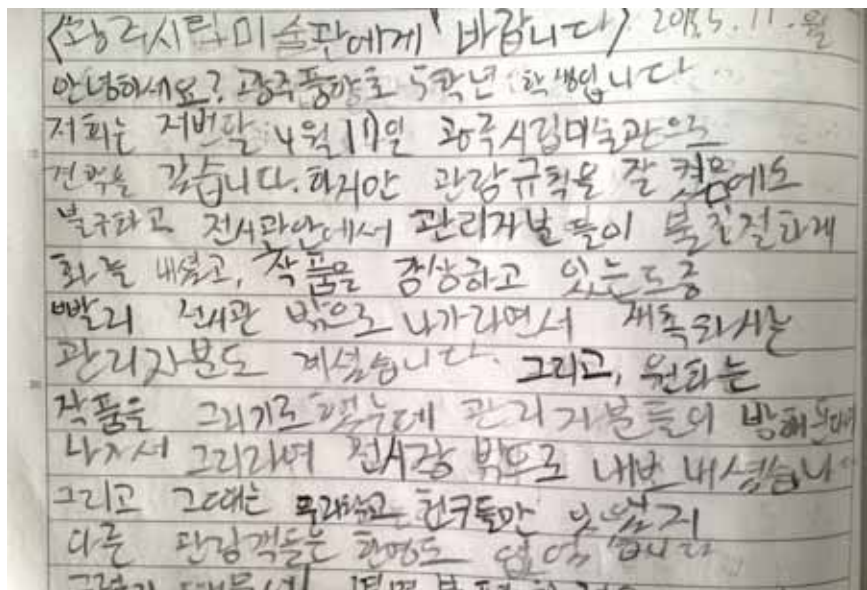 <광주시립미술관에게 바랍니다> 5.11.월
안녕하세요? 광주풍향초 5학년 학생입니다
저희는 저번달 4월 17일 광주시립미술관으로
견학을 갔습니다. 하지만 관람규칙을 잘 켰음에도
불구하고 전시관안에서 관리자분들이 불친절하게
화를 내셨고, 작품을 감상하고 있는도중
빨리 전시관 밖으로 나가라면서 재촉하시는
관리자분도 계셨습니다. 그리고, 원하는
작품을 그리기로 했는데 관리자분들의 방해
나가서 그리라며 전시장 밖으로 내셨습니
그리고 그때는 친구들만 있었지
다른 관람객들은 한명도 없었습니다